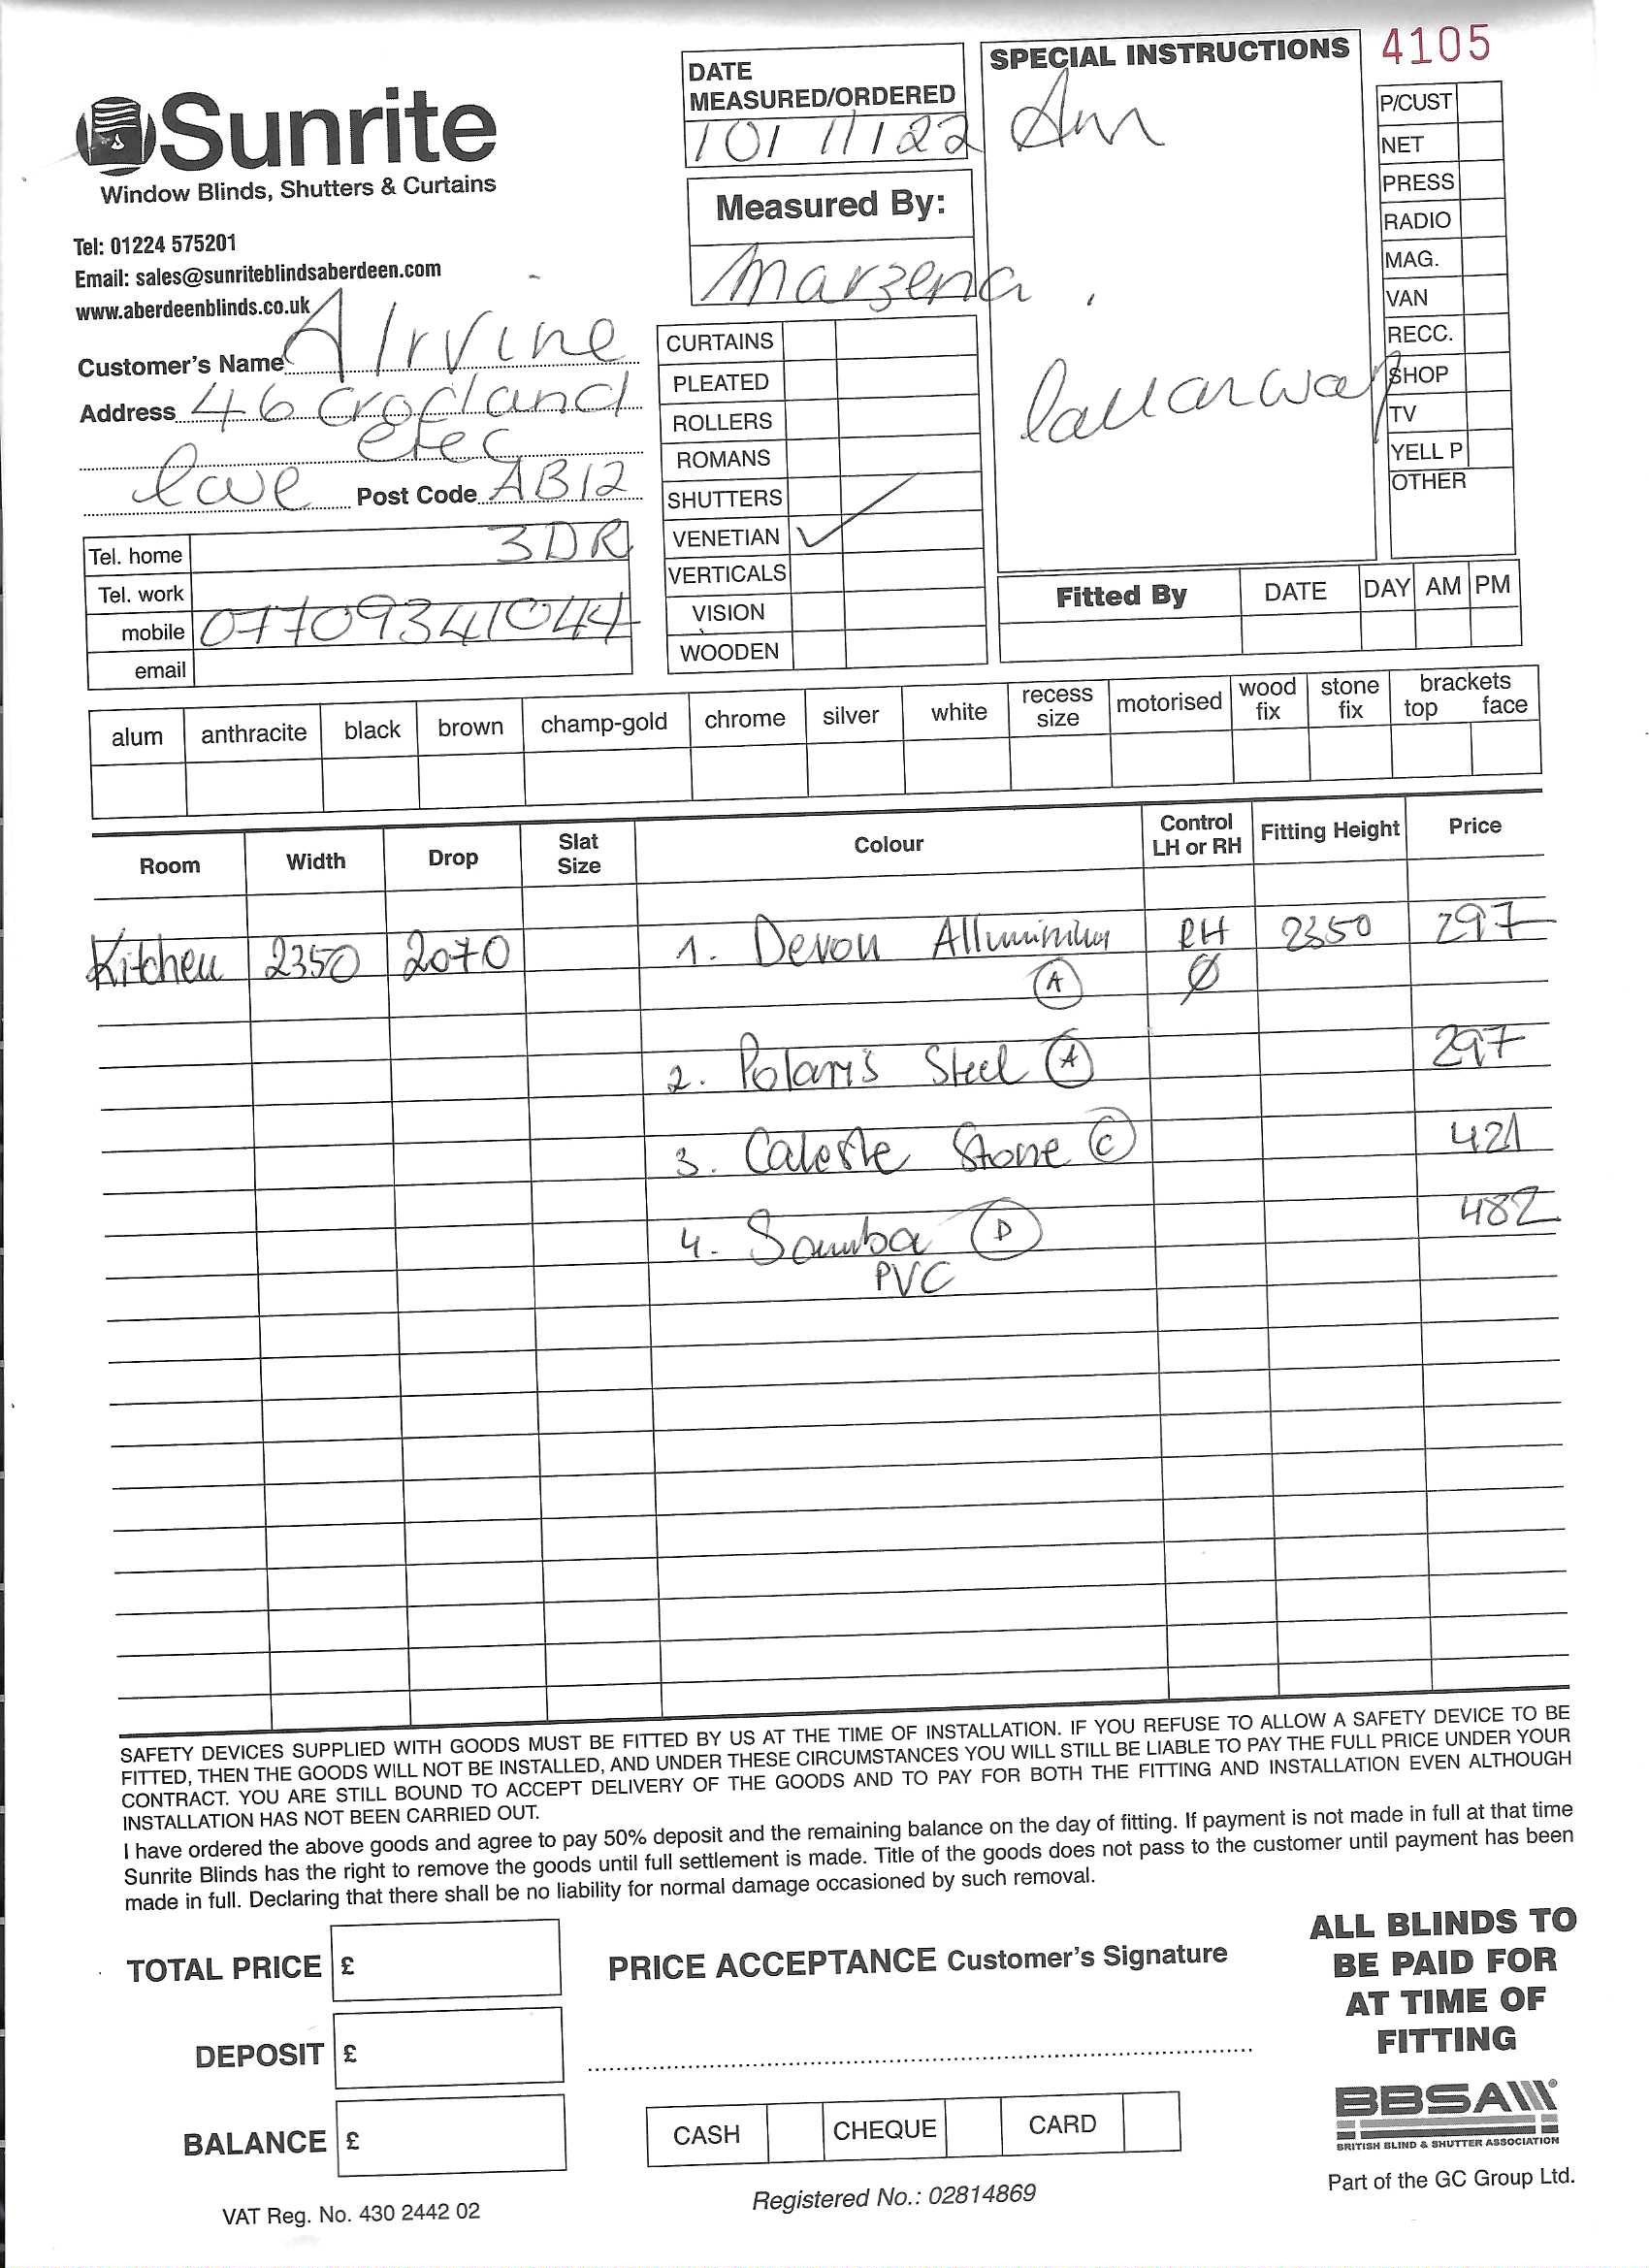 4105
Sunrite
Window Blinds, Shutters & Curtains
Tel: 01224 575201
Email: sales@sunriteblindsaberdeen.com
www.aberdeenblinds.co.uk
Customer's Name A Irvine
Address 46 Crofland
cove Post Code AB12
3DR
Tel. home
Tel. work
mobile 07709341044
email
DATE
MEASURED/ORDERED
10/11/22
Measured By:
Marzena
CURTAINS
PLEATED
ROLLERS
ROMANS
SHUTTERS
VENETIAN ✓
VERTICALS
VISION
WOODEN
SPECIAL INSTRUCTIONS
Am
P/CUST
NET
PRESS
RADIO
MAG.
VAN
RECC.
SHOP
TV
YELL P
OTHER
Fitted By DATE DAY AM PM
alum anthracite black brown champ-gold chrome silver white recess size motorised wood fix stone fix brackets top face
Room Width Drop Slat Size Colour Control LH or RH Fitting Height Price
Kitchen 2350 2070 1. Devon Alluminium RH 2350 297
A Ø
2. Polaris Steel A 297
3. Caleste Stone C 421
4. Samba D 482
PVC
SAFETY DEVICES SUPPLIED WITH GOODS MUST BE FITTED BY US AT THE TIME OF INSTALLATION. IF YOU REFUSE TO ALLOW A SAFETY DEVICE TO BE
FITTED, THEN THE GOODS WILL NOT BE INSTALLED, AND UNDER THESE CIRCUMSTANCES YOU WILL STILL BE LIABLE TO PAY THE FULL PRICE UNDER YOUR
CONTRACT. YOU ARE STILL BOUND TO ACCEPT DELIVERY OF THE GOODS AND TO PAY FOR BOTH THE FITTING AND INSTALLATION EVEN ALTHOUGH
INSTALLATION HAS NOT BEEN CARRIED OUT.
I have ordered the above goods and agree to pay 50% deposit and the remaining balance on the day of fitting. If payment is not made in full at that time
Sunrite Blinds has the right to remove the goods until full settlement is made. Title of the goods does not pass to the customer until payment has been
made in full. Declaring that there shall be no liability for normal damage occasioned by such removal.
TOTAL PRICE £
DEPOSIT £
BALANCE £
PRICE ACCEPTANCE Customer's Signature
CASH CHEQUE CARD
ALL BLINDS TO
BE PAID FOR
AT TIME OF
FITTING
BBSA
BRITISH BLIND & SHUTTER ASSOCIATION
Part of the GC Group Ltd.
VAT Reg. No. 430 2442 02
Registered No.: 02814869